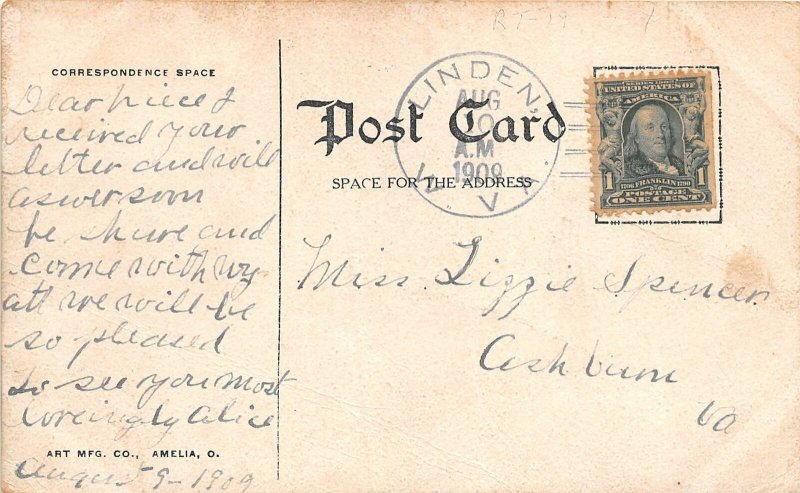 RT-19
CORRESPONDENCE SPACE
Dear niece I
received your
letter and will
aswer soon
be shure and
come with
att we will be
so pleased
to see you most
loveingly Alice
ART MFG. CO., AMELIA, O.
August 9-1909
Post Card
SPACE FOR THE ADDRESS
LINDEN,
AUG
10
A.M
1909
VA.
SERIES 1902
UNITED STATES OF
AMERICA
1706 FRANKLIN 1790
POSTAGE
1 ONE CENT 1
Miss Lizzie Spencer
Ashburn
Va